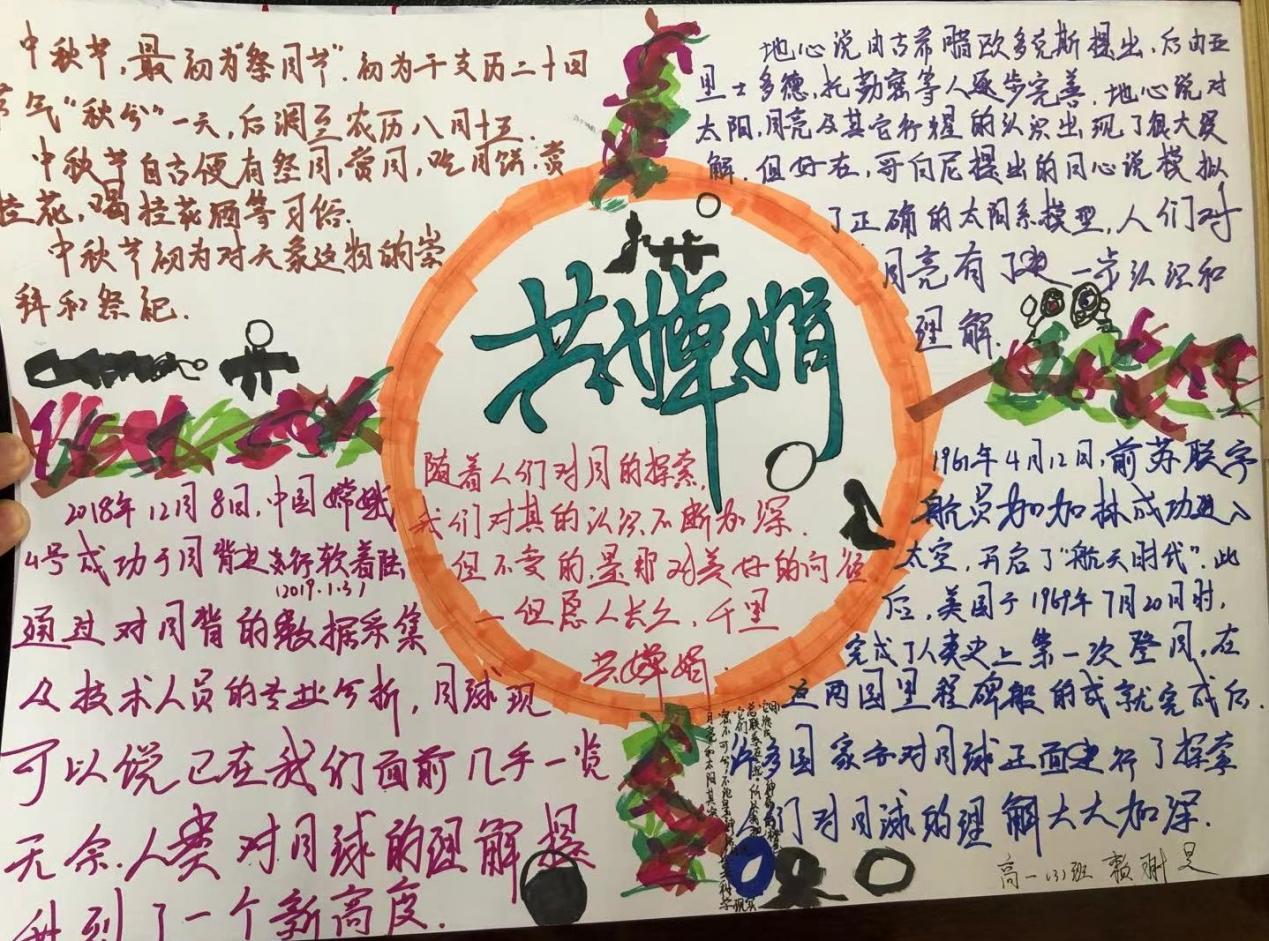 中秋节,最初为"祭月节".初为干支历二十四
节气"秋分"一天,后调至农历八月十五.
中秋节自古便有祭月,赏月,吃月饼,赏
桂花,喝桂花酒等习俗.
中秋节初为对天象这物的崇
拜和祭祀.
地心说由古希腊欧多克斯提出,后由亚
里士多德,托勒密等人逐步完善.地心说对
太阳,月亮及其它行星的认识出现了很大误
解.但好在,哥白尼提出的日心说模拟
了正确的太阳系模型,人们对
月亮有了进一步认识和
理解.
共婵娟
随着人们对月的探索,
我们对其的认识不断加深.
但不变的,是那对美好的向往
—但愿人长久,千里
共婵娟.
2018年12月8日,中国嫦娥
4号成功于月背进行软着陆
(2019.1.3)
通过对月背的数据采集
及技术人员的专业分析,月球现
可以说已在我们面前几乎一览
无余.人类对月球的理解提
升到了一个新高度.
1961年4月12日,前苏联宇
航员加加林成功进入
太空,开启了"航天时代".此
后,美国于1969年7月20日时,
完成了人类史上第一次登月,在
这两国里程碑般的成就完成后.
许多国家亦对月球正面进行了探索
人们对月球的理解大大加深.
高一(3)班 赖